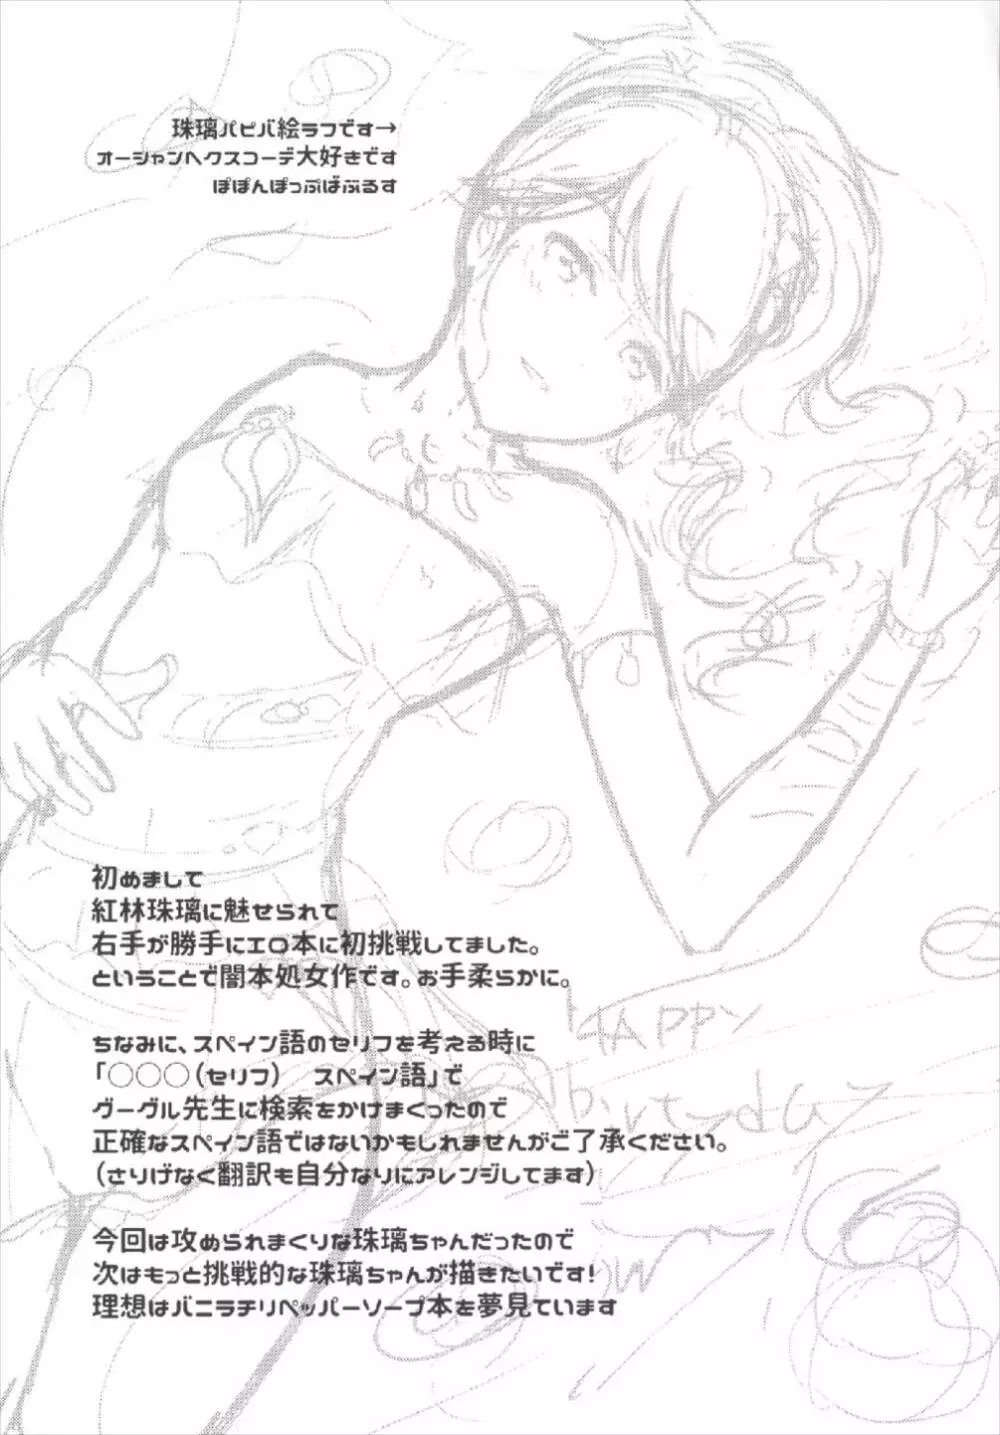 珠璃パピバ絵ラフです→
オーシャンヘクスコーデ大好きです
ぽぽんぽっぷばぶるす
初めまして
紅林珠璃に魅せられて
右手が勝手にエロ本に初挑戦してました。
ということで闇本処女作です。お手柔らかに。
ちなみに、スペイン語のセリフを考える時に
「〇〇〇（セリフ）　スペイン語」で
グーグル先生に検索をかけまくったので
正確なスペイン語ではないかもしれませんがご了承ください。
（さりげなく翻訳も自分なりにアレンジしてます）
HAPPY
birthday
今回は攻められまくりな珠璃ちゃんだったので
次はもっと挑戦的な珠璃ちゃんが描きたいです！
理想はバニラチリペッパーソープ本を夢見ています